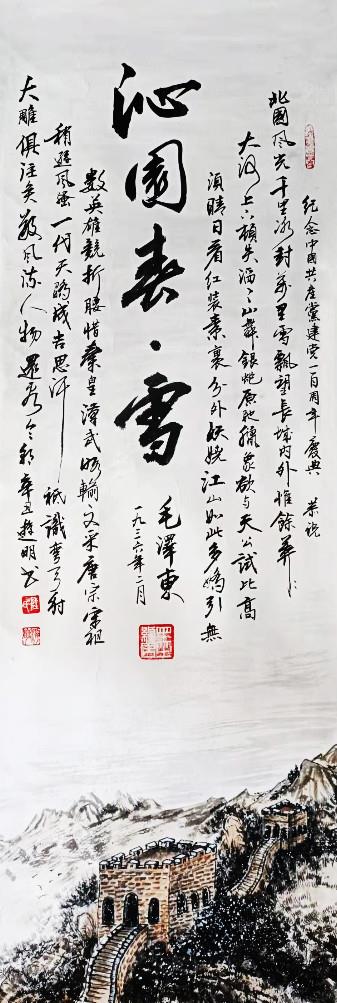 紀念中國共産黨建党一百周年慶典
北國风光千里冰封萬里雪飄望長城内外惟餘莽々
大河上下頓失滔々山舞銀蛇原馳臘象欲与天公試比高
須晴日看紅装素裹分外妖娆江山如此多嬌引無
沁園春·雪
毛澤東
一九三六年二月
數英雄競折腰惜秦皇漢武略輸文采唐宗宋祖
稍遜风骚一代天驕成吉思汗祇識彎弓射
大雕俱往矣數风流人物還看今朝辛丑